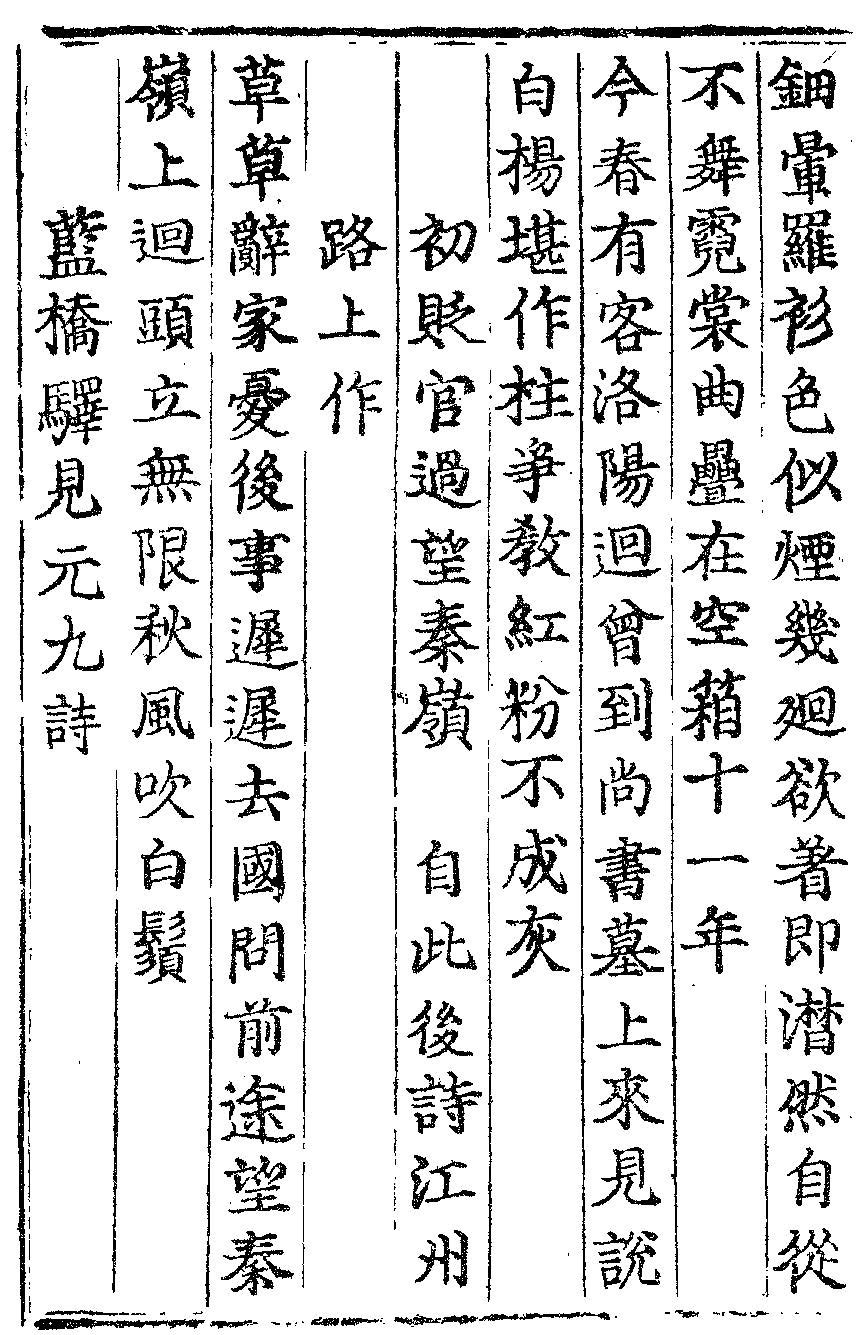 鈿暈羅衫色似煙幾迴欲著即潸然自從
不舞霓裳曲疊在空箱十一年
今春有客洛陽迴曾到尚書墓上來見說
白楊堪作柱爭教紅粉不成灰
初貶官過望秦嶺　自此後詩江州
路上作
草草辭家憂後事遲遲去國問前途望秦
嶺上迴頭立無限秋風吹白鬚
藍橋驛見元九詩